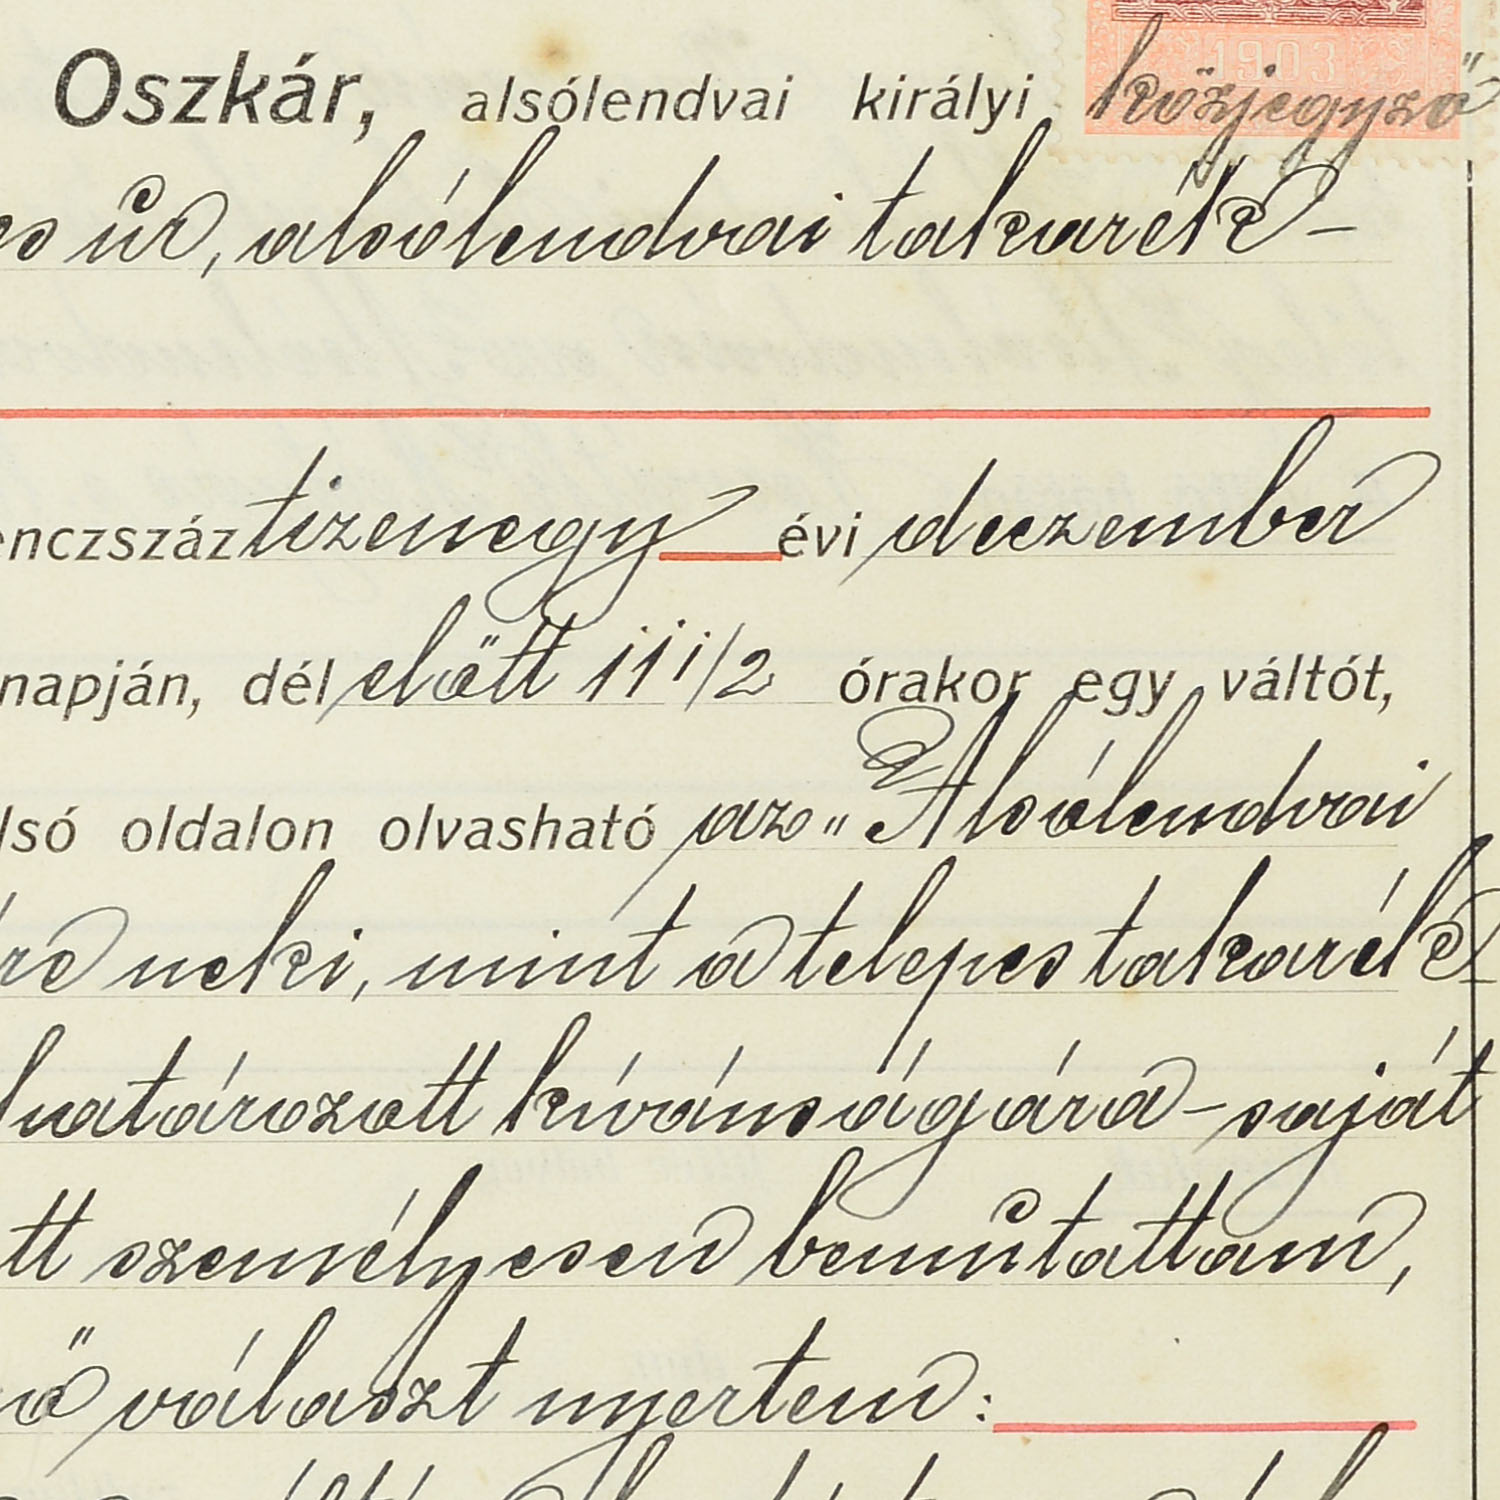 Oszkár, alsólendvai királyi közjegyző
1903
es úr, alsólendvai takarék-
enczszáz tizenegy évi deczember
napján, dél előtt 11 1/2 órakor egy váltót,
lső oldalon olvasható az „Alsólendvai
re neki, mint a telepes takarék-
határozott kívánságára - saját
tt személyesen bemutattam,
ő választ nyertem: